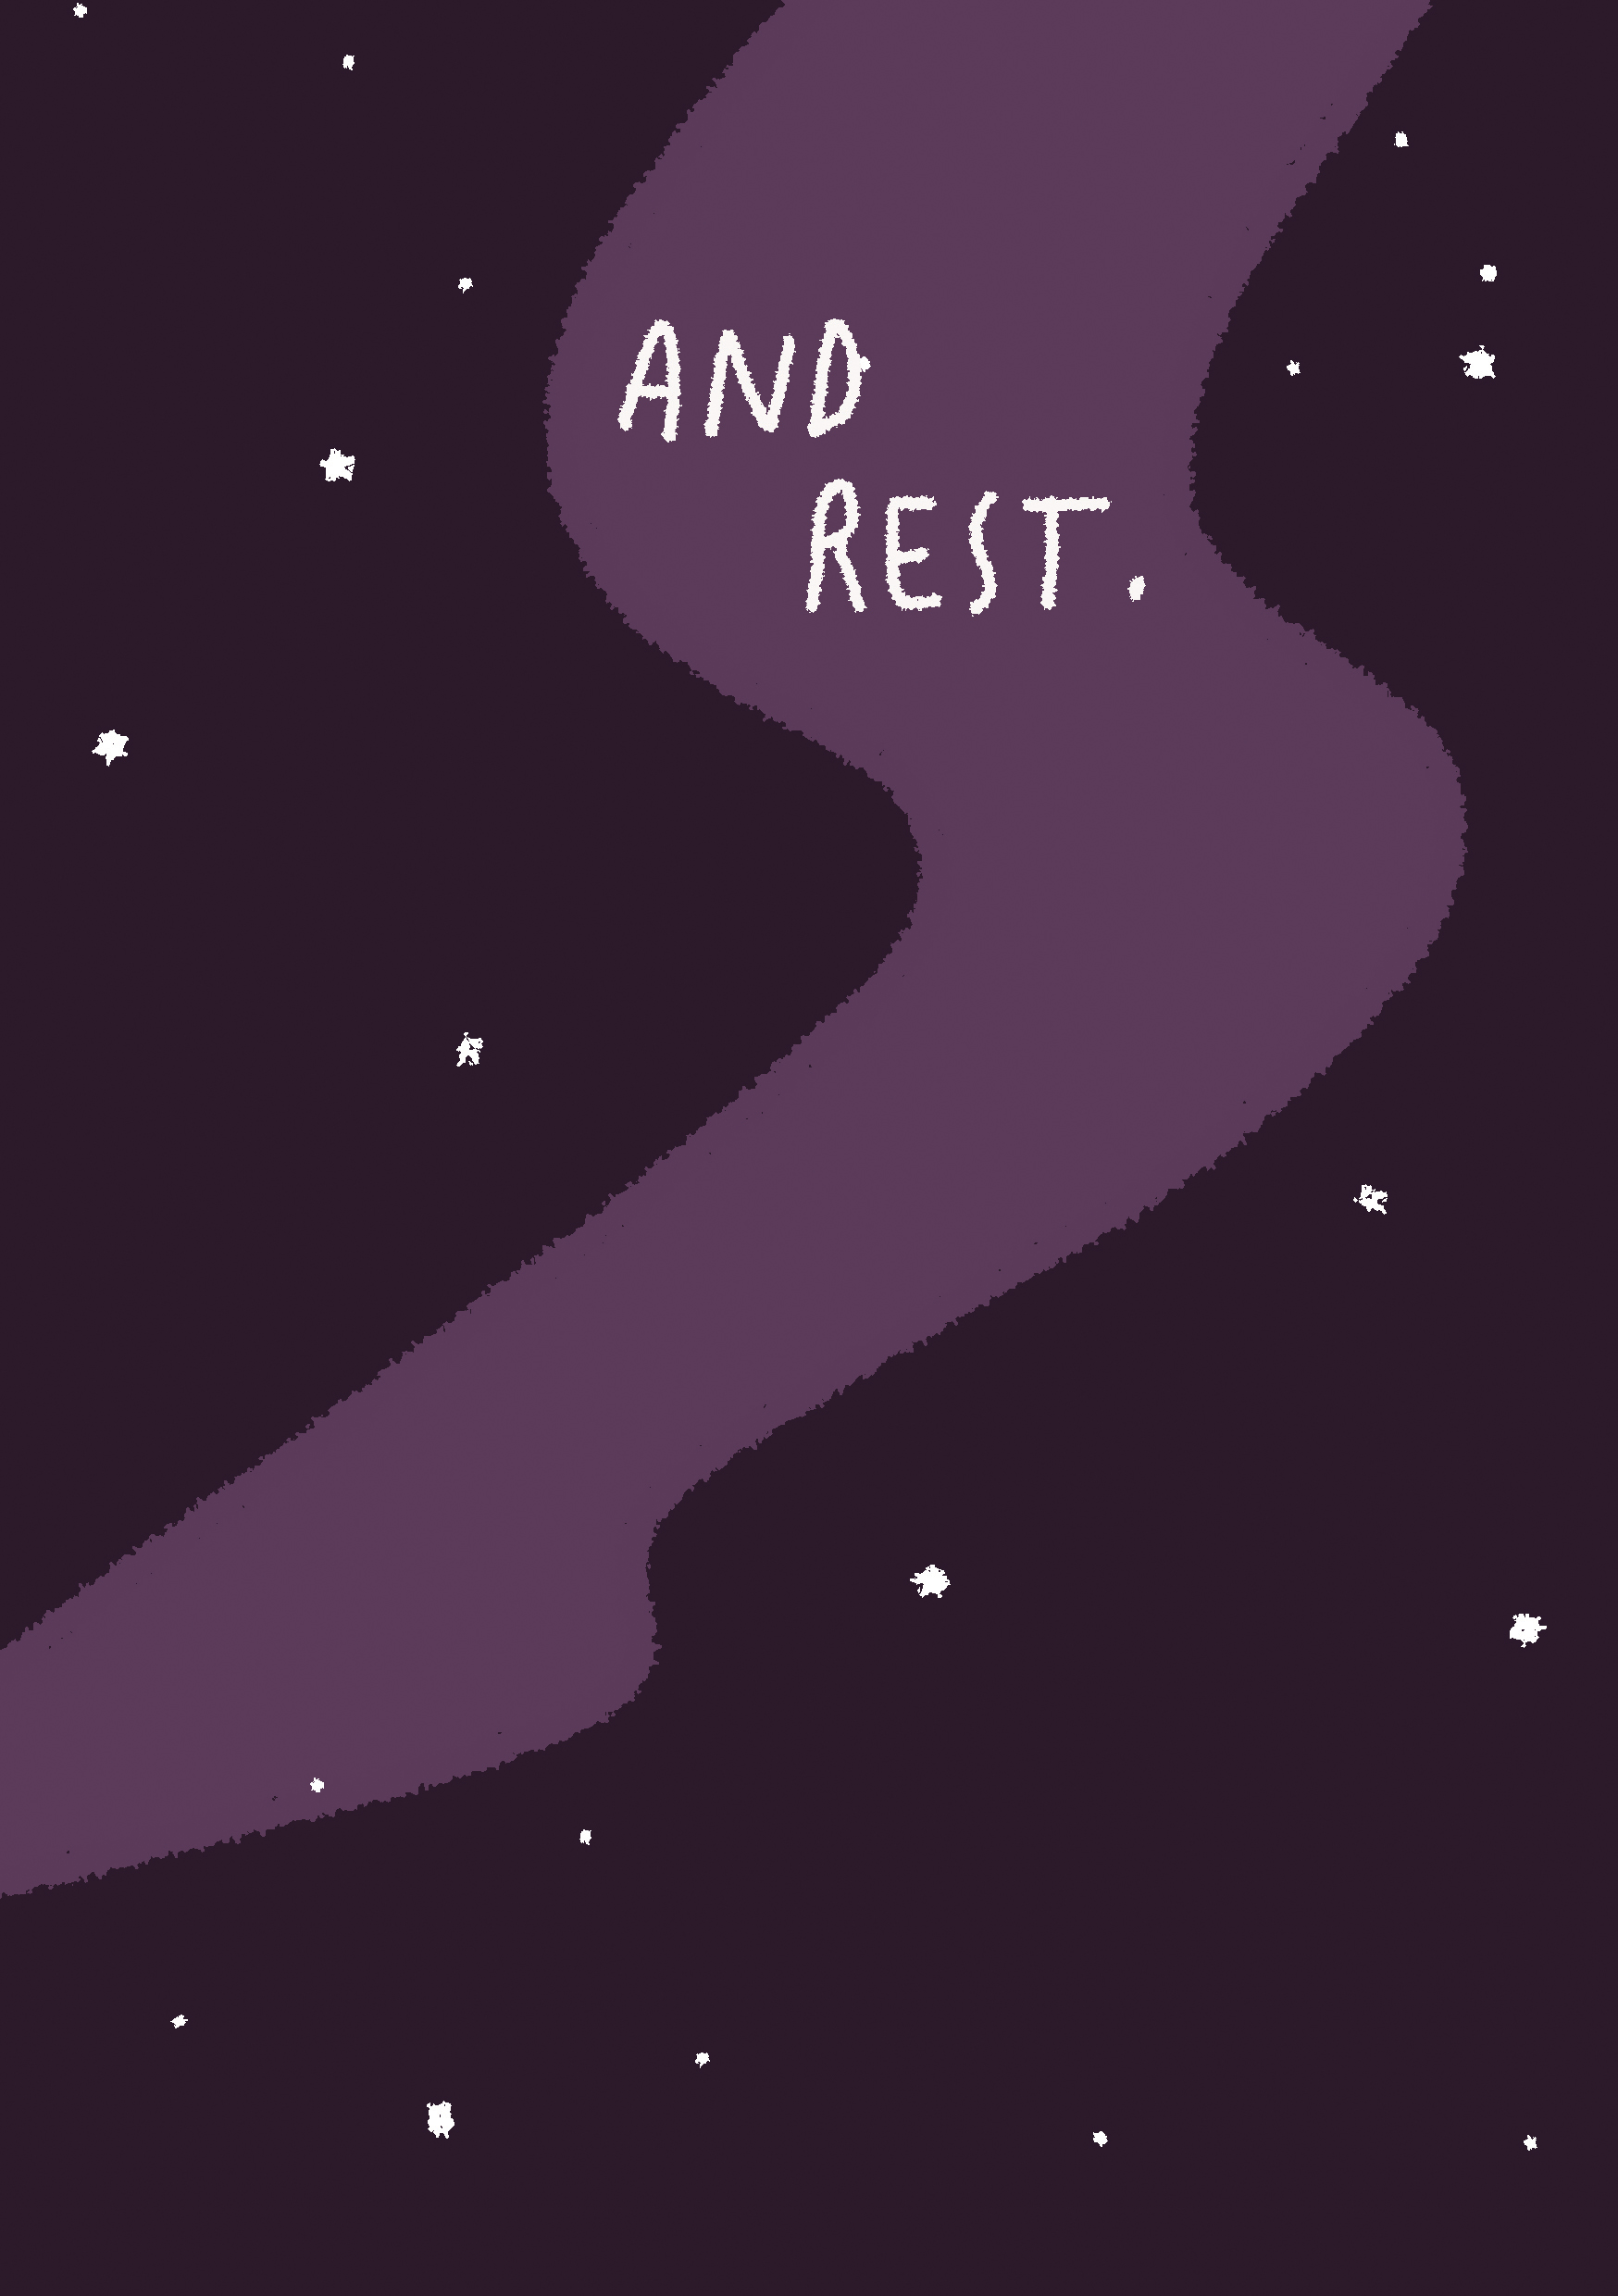 AND
REST.